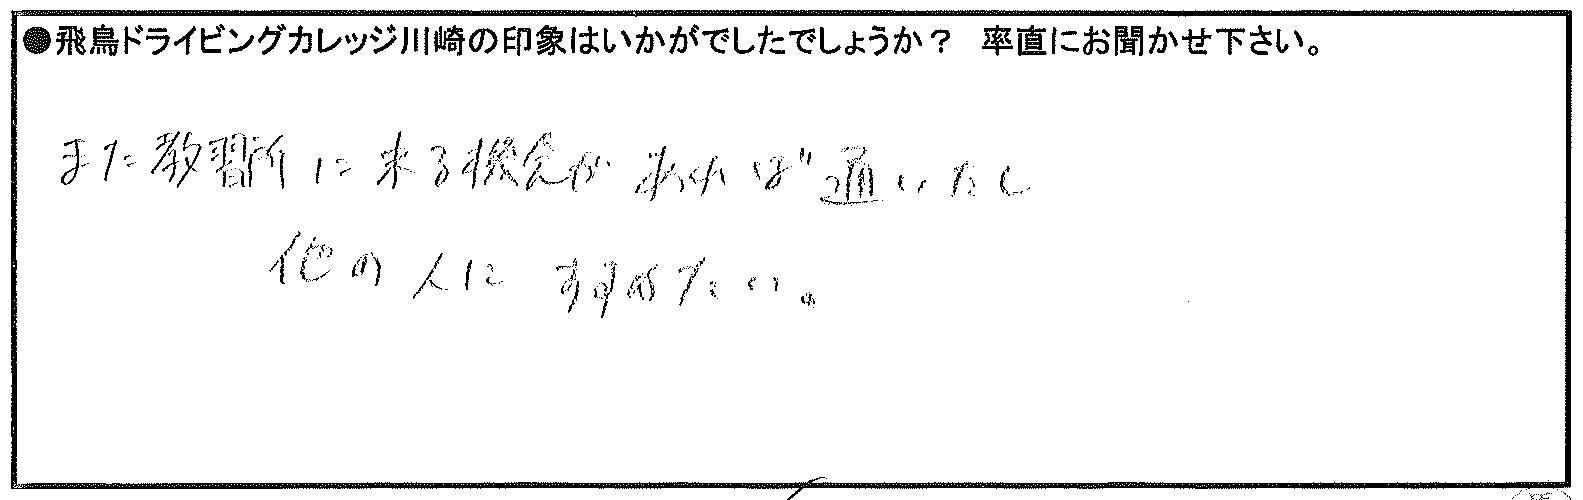 ●飛鳥ドライビングカレッジ川崎の印象はいかがでしたでしょうか？　率直にお聞かせ下さい。
また教習所に来る機会があれば通いたし
他の人にすすめたい。